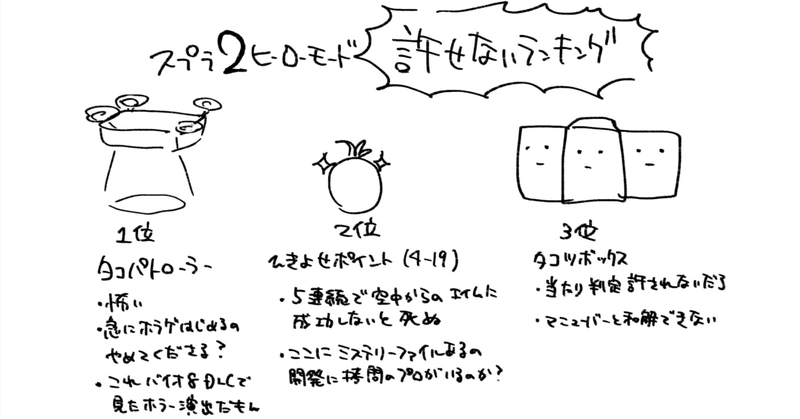 スプラ2ヒーローモード 許せないランキング
1位
タコパトローラー
・怖い
・急にホラゲはじめるの
やめてくださる?
・これバイオ8DLCで
見たホラー演出だもん
2位
ひきよせポイント(4-19)
・5連続で空中からのエイムに
成功しないと死ぬ
・ここにミステリーファイルあるの
開発に拷問のプロがいるのか?
3位
タコツボックス
・当たり判定許されないだろ
・マニューバーと和解できない